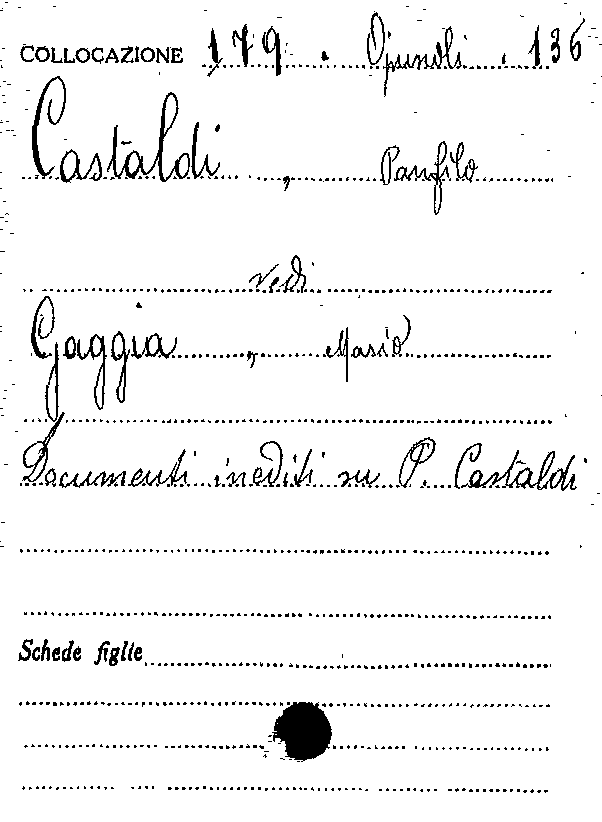 COLLOCAZIONE 179. Opuscoli. 136
Castaldi, Panfilo
vedi
Gaggia, Mario
Documenti inediti su P. Castaldi
Schede figlie